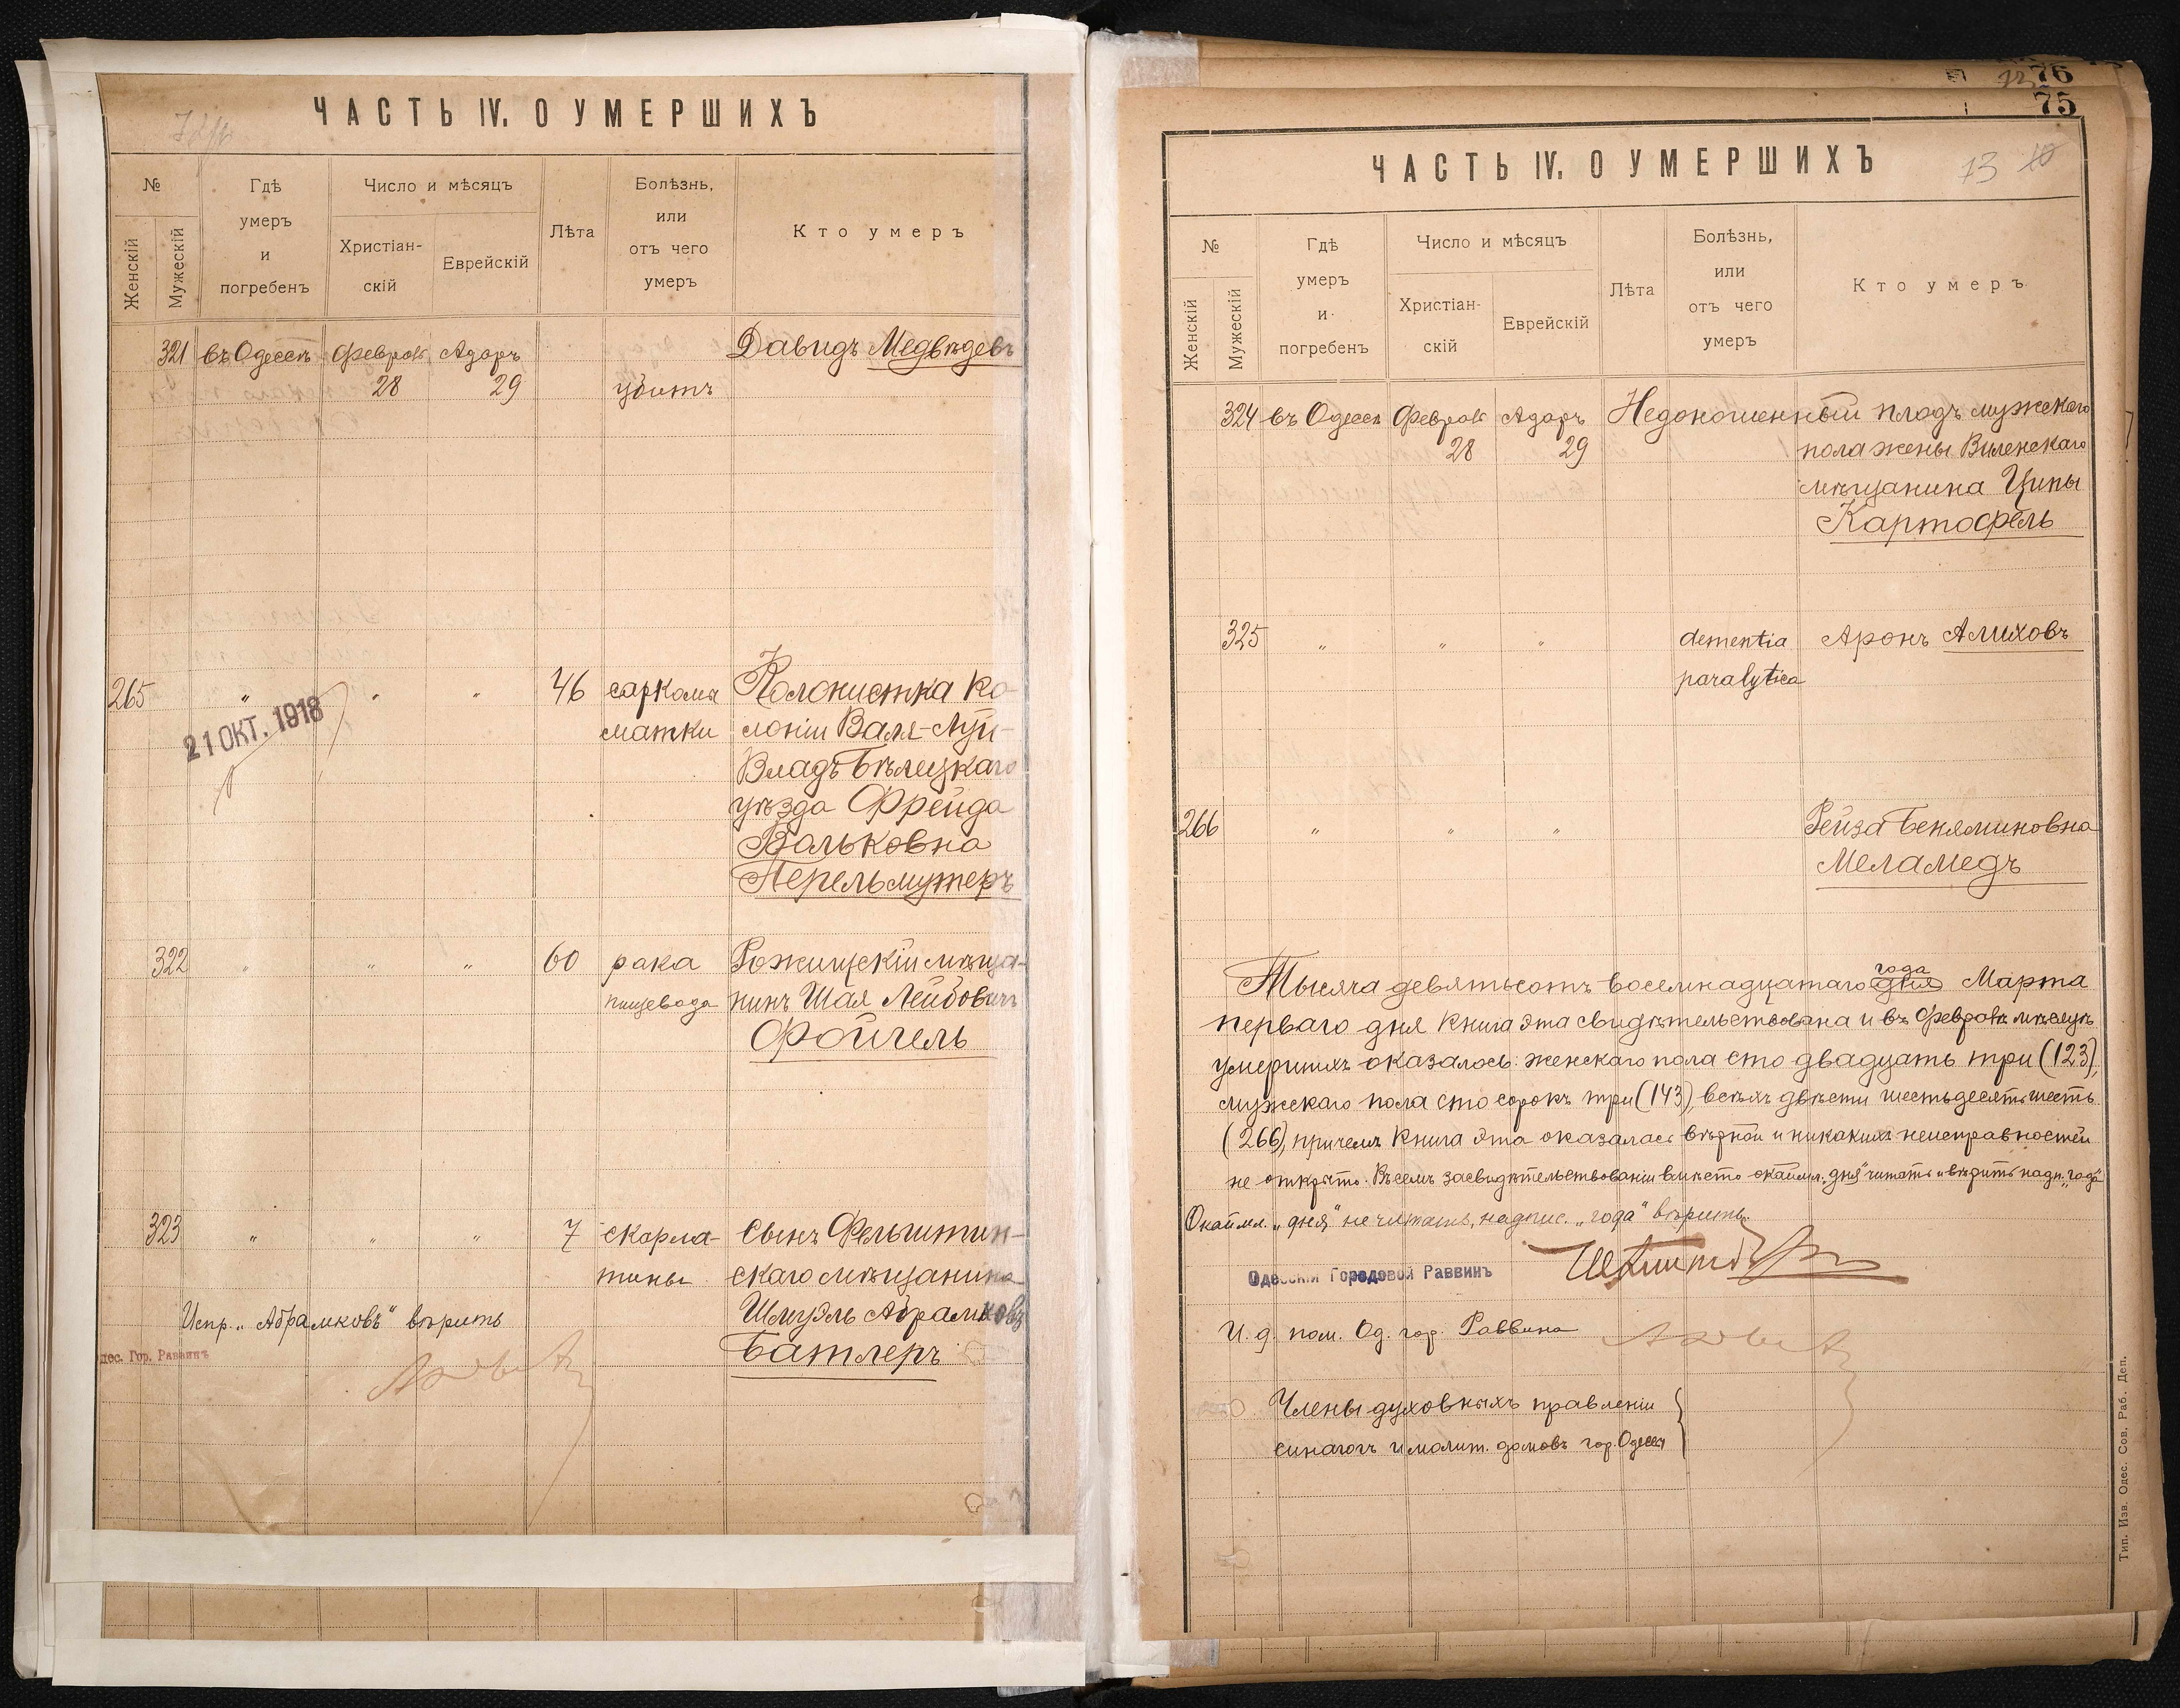 ЧАСТЬ IV. О УМЕРШИХЪ
№
Женскій
Мужескій
Гдѣ
умеръ
и
погребенъ
Число и мѣсяцъ
Христіан-
скій
Еврейскій
Лѣта
Болѣзнь,
или
отъ чего
умеръ
Кто умеръ
321 въ Одессѣ Февраль Адаръ Давидъ Медвѣдевъ
28 29 убитъ
265 " " " 46 саркома Колонистка ко-
матки лоніи Валя-луй-
21 ОКТ. 1918
Владъ Бѣлецкаго
уѣзда Фрейда
Вольковна
Перельмутеръ
322 " " " 60 рака Рожищскій мѣща-
пищевода нинъ Шая Лейбовичъ
Фойгель
323 " " " 7 скарла- Сынъ Фельштин-
тины скаго мѣщанина
Испр. „Абрамковъ" вѣрить Шмуэль Абрамковъ
дес. Гор. Раввинъ Батлеръ
76
75
ЧАСТЬ IV. О УМЕРШИХЪ 73
№
Женскій
Мужескій
Гдѣ
умеръ
и
погребенъ
Число и мѣсяцъ
Христіан-
скій
Еврейскій
Лѣта
Болѣзнь,
или
отъ чего
умеръ
Кто умеръ
324 въ Одессѣ Февраль Адаръ Недоношенный плодъ мужскаго
28 29 пола жены Виленскаго
мѣщанина Ципы
Картофель
325 " " " dementia Аронъ Алиховъ
paralytica
266 " " " Рейза Беняминовна
Меламедъ
года
Тысяча девятьсотъ восемнадцатаго дня Марта
перваго дня книга эта свидѣтельствована и въ Февралѣ мѣсяцѣ
умершихъ оказалось: женскаго пола сто двадцать три (123),
мужескаго пола сто сорокъ три (143), всѣхъ двѣсти шестьдесятъ шесть
(266), причемъ книга эта оказалась вѣрной и никакихъ неисправностей
не открыто. Въ семъ засвидѣтельствованіи вмѣсто окаймл. „дня" читать и вѣрить надп. „года"
Окаймл. „дня" не читать, надпис. „года" вѣрить.
Одесскій Городовой Раввинъ
И. д. пом. Од. гор. Раввина
Члены духовныхъ правленій
синагогъ и молит. домовъ гор. Одессы
Тип. Изв. Одес. Сов. Раб. Деп.